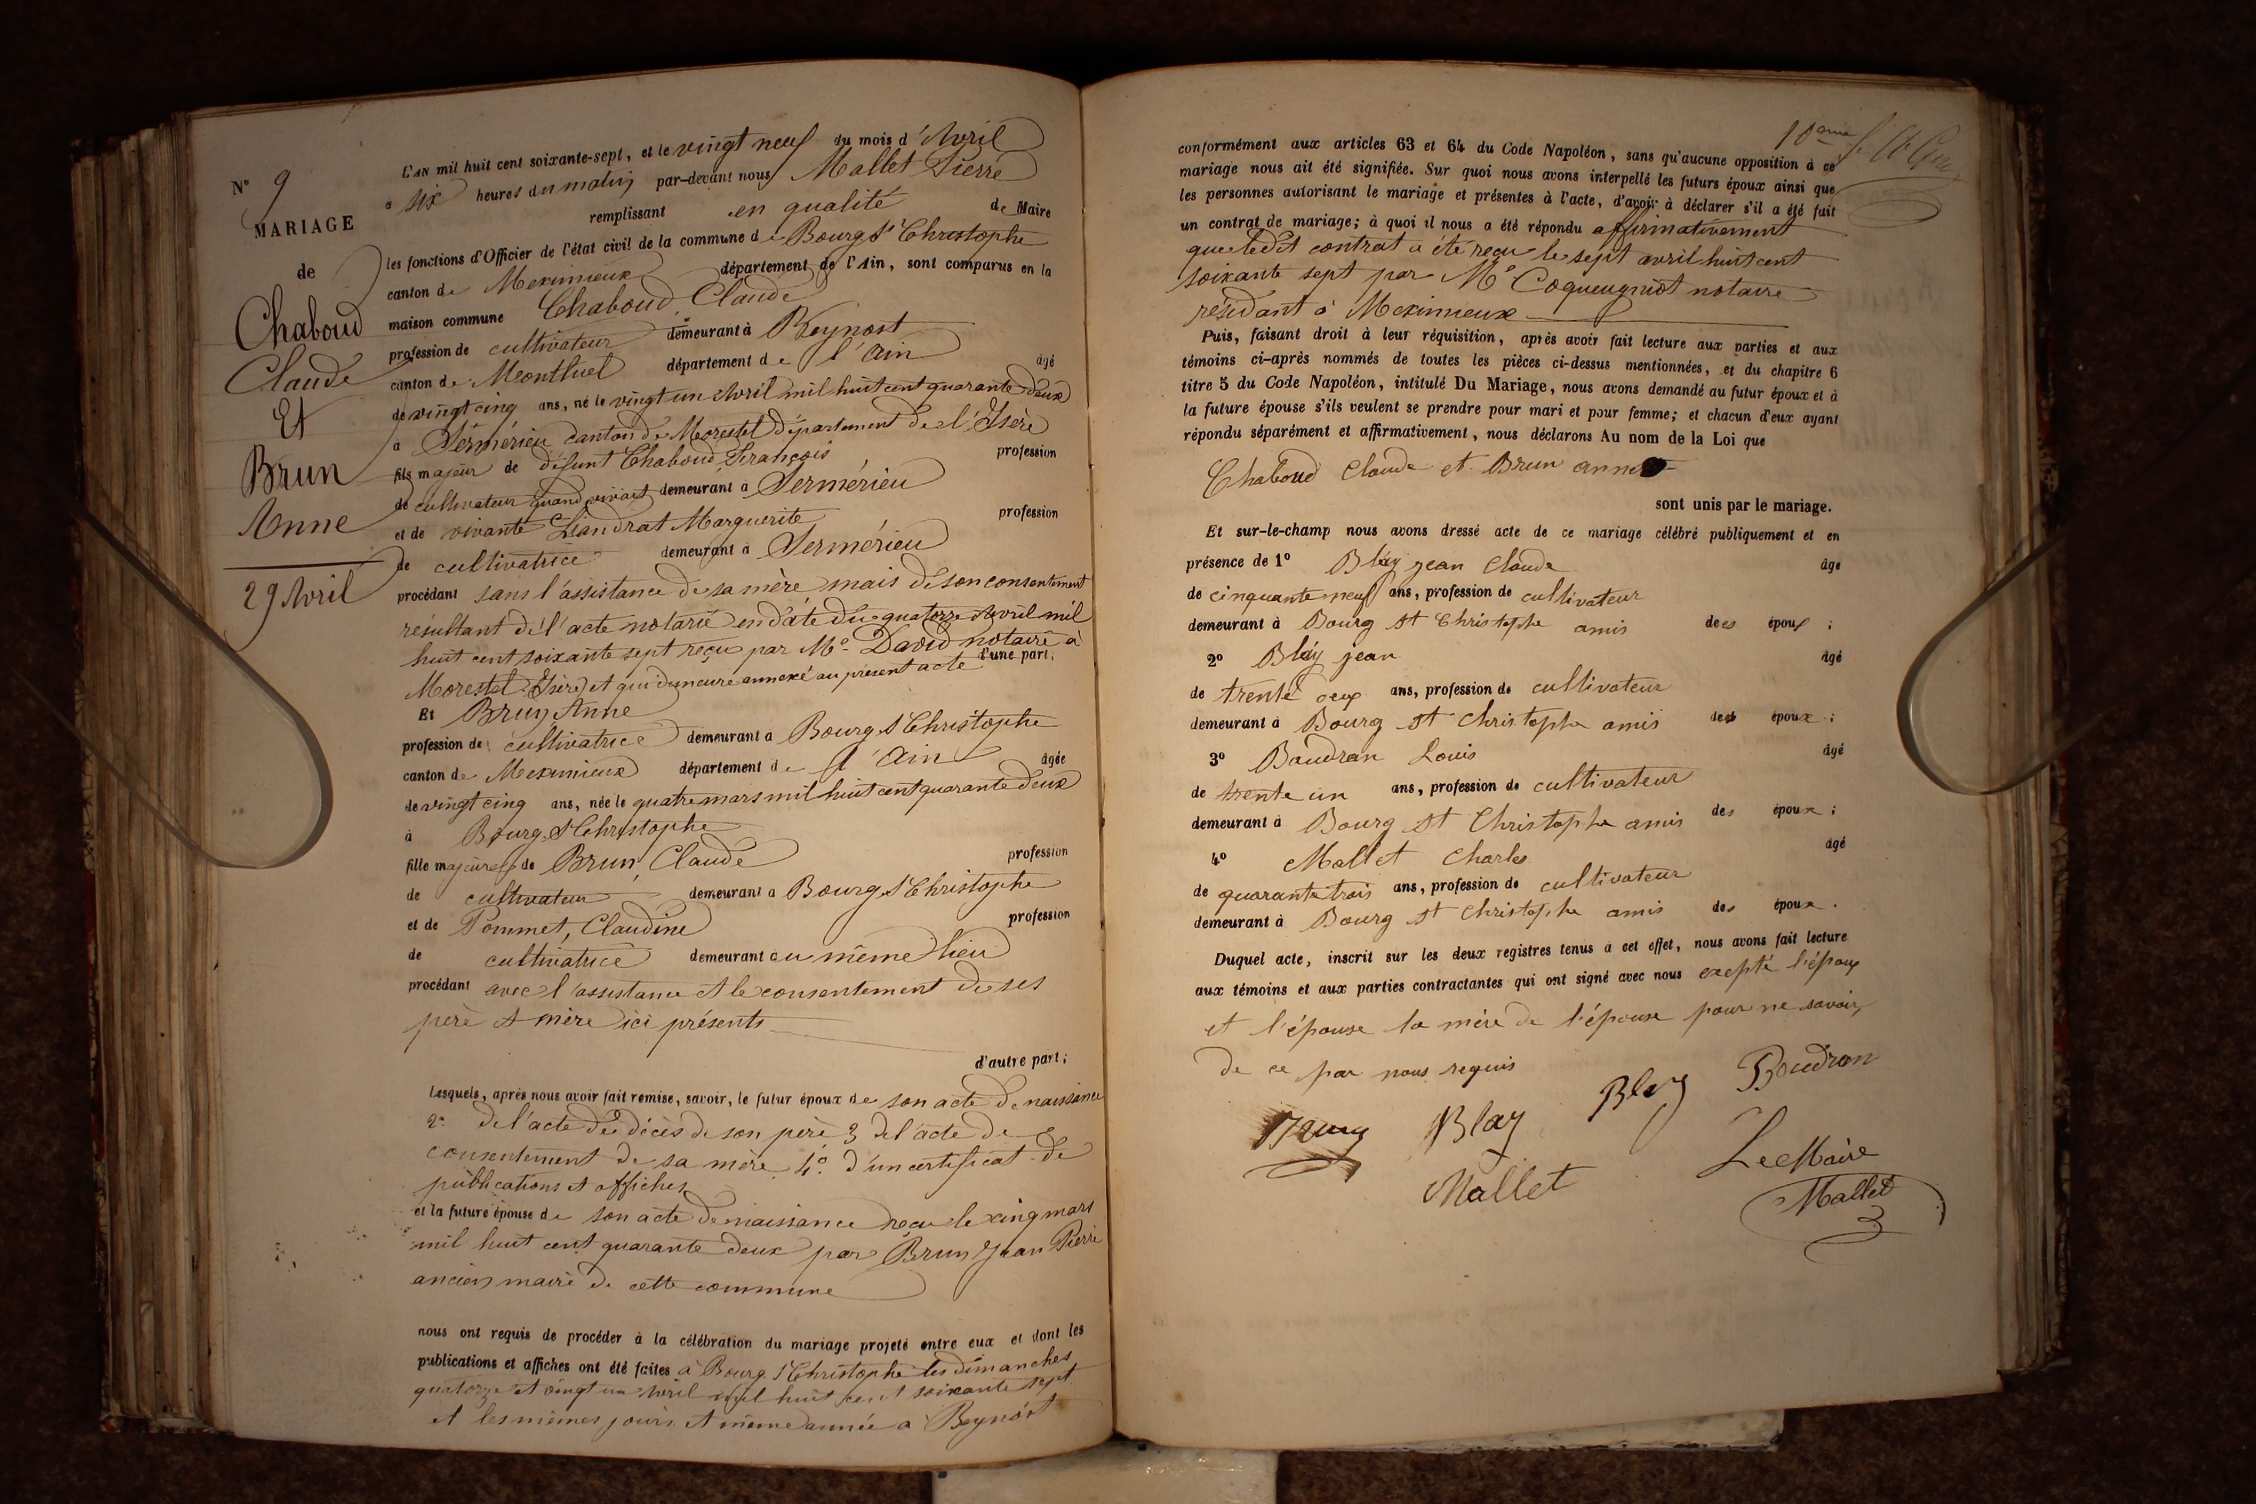 N° 9
MARIAGE
de
Chaboud
Claude
Et
Brun
Anne
29 Avril
L'AN mil huit cent soixante-sept, et le vingt neuf du mois d'Avril
à six heures du matin par-devant nous Mallet Pierre
remplissant en qualité de Maire
les fonctions d'Officier de l'état civil de la commune de Bourg St Christophe
canton de Meximieux département de l'Ain, sont comparus en la
maison commune Chaboud, Claude
profession de cultivateur demeurant à Beynost
canton de Montluel département de l'Ain âgé
de vingt cinq ans, né le vingt un Avril mil huit cent quarante deux
à Sermérieu canton de Morestel département de l'Isère
fils majeur de défunt Chaboud, François profession
de cultivateur quand vivait demeurant à Sermérieu
et de vivante Liandrat Marguerite profession
de cultivatrice demeurant à Sermérieu
procédant sans l'assistance de sa mère mais de son consentement
resultant de l'acte notarié en date du quatorze Avril mil
huit cent soixante sept reçu par Me David notaire à
Morestel (Isère) et qui demeure annexé au présent acte d'une part;
Et Brun, Anne
profession de cultivatrice demeurant à Bourg St Christophe
canton de Meximieux département de l'Ain âgée
de vingt cinq ans, née le quatre mars mil huit cent quarante deux
à Bourg St Christophe
fille majeure de Brun, Claude profession
de cultivateur demeurant à Bourg St Christophe
et de Pommet, Claudine profession
de cultivatrice demeurant au même lieu
procédant avec l'assistance et le consentement de ses
père et mère ici présents
d'autre part;
Lesquels, après nous avoir fait remise, savoir, le futur époux de son acte de naissance
2° de l'acte de décès de son père 3 de l'acte de
consentement de sa mère 4° d'un certificat de
publications et affiches
et la future épouse de son acte de naissance reçu le cinq mars
mil huit cent quarante deux par Brun Jean Pierre
ancien maire de cette commune
nous ont requis de procéder à la célébration du mariage projeté entre eux et dont les
publications et affiches ont été faites à Bourg St Christophe les dimanches
quatorze et vingt un Avril mil huit cent soixante sept
et les mêmes jours et même année à Beynost
conformément aux articles 63 et 64 du Code Napoléon, sans qu'aucune opposition à ce
mariage nous ait été signifiée. Sur quoi nous avons interpellé les futurs époux ainsi que
les personnes autorisant le mariage et présentes à l'acte, d'avoir à déclarer s'il a été fait
un contrat de mariage; à quoi il nous a été répondu affirmativement
que ledit contrat a été reçu le sept avril huit cent
soixante sept par Me Coqueugniot notaire
résidant à Meximieux
Puis, faisant droit à leur réquisition, après avoir fait lecture aux parties et aux
témoins ci-après nommés de toutes les pièces ci-dessus mentionnées, et du chapitre 6
titre 5 du Code Napoléon, intitulé Du Mariage, nous avons demandé au futur époux et à
la future épouse s'ils veulent se prendre pour mari et pour femme; et chacun d'eux ayant
répondu séparément et affirmativement, nous déclarons Au nom de la Loi que
Chaboud Claude et Brun anne
sont unis par le mariage.
Et sur-le-champ nous avons dressé acte de ce mariage célébré publiquement et en
présence de 1° Bläy jean Claude âgé
de cinquante neuf ans, profession de cultivateur
demeurant à Bourg St Christophe amis des époux;
2° Bläy jean âgé
de trente deux ans, profession de cultivateur
demeurant à Bourg St Christophe amis des époux;
3° Baudran Louis âgé
de trente un ans, profession de cultivateur
demeurant à Bourg St Christophe amis des époux;
4° Mallet Charles âgé
de quarante trois ans, profession de cultivateur
demeurant à Bourg St Christophe amis des époux.
Duquel acte, inscrit sur les deux registres tenus à cet effet, nous avons fait lecture
aux témoins et aux parties contractantes qui ont signé avec nous excepté l'époux
et l'épouse la mère de l'épouse pour ne savoir
de ce par nous requis
Brun Blay Blay Boudron
Mallet Le Maire
Mallet